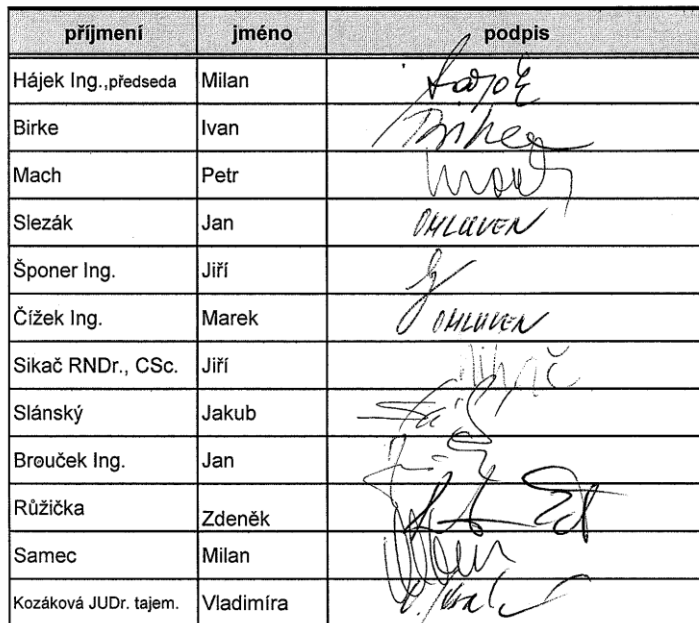 příjmení jméno podpis
Hájek Ing.,předseda Milan
Birke Ivan Birke
Mach Petr Mach
Slezák Jan OMLUVEN
Šponer Ing. Jiří
Čížek Ing. Marek OMLUVEN
Sikač RNDr., CSc. Jiří
Slánský Jakub
Brouček Ing. Jan
Růžička Zdeněk
Samec Milan
Kozáková JUDr. tajem. Vladimíra